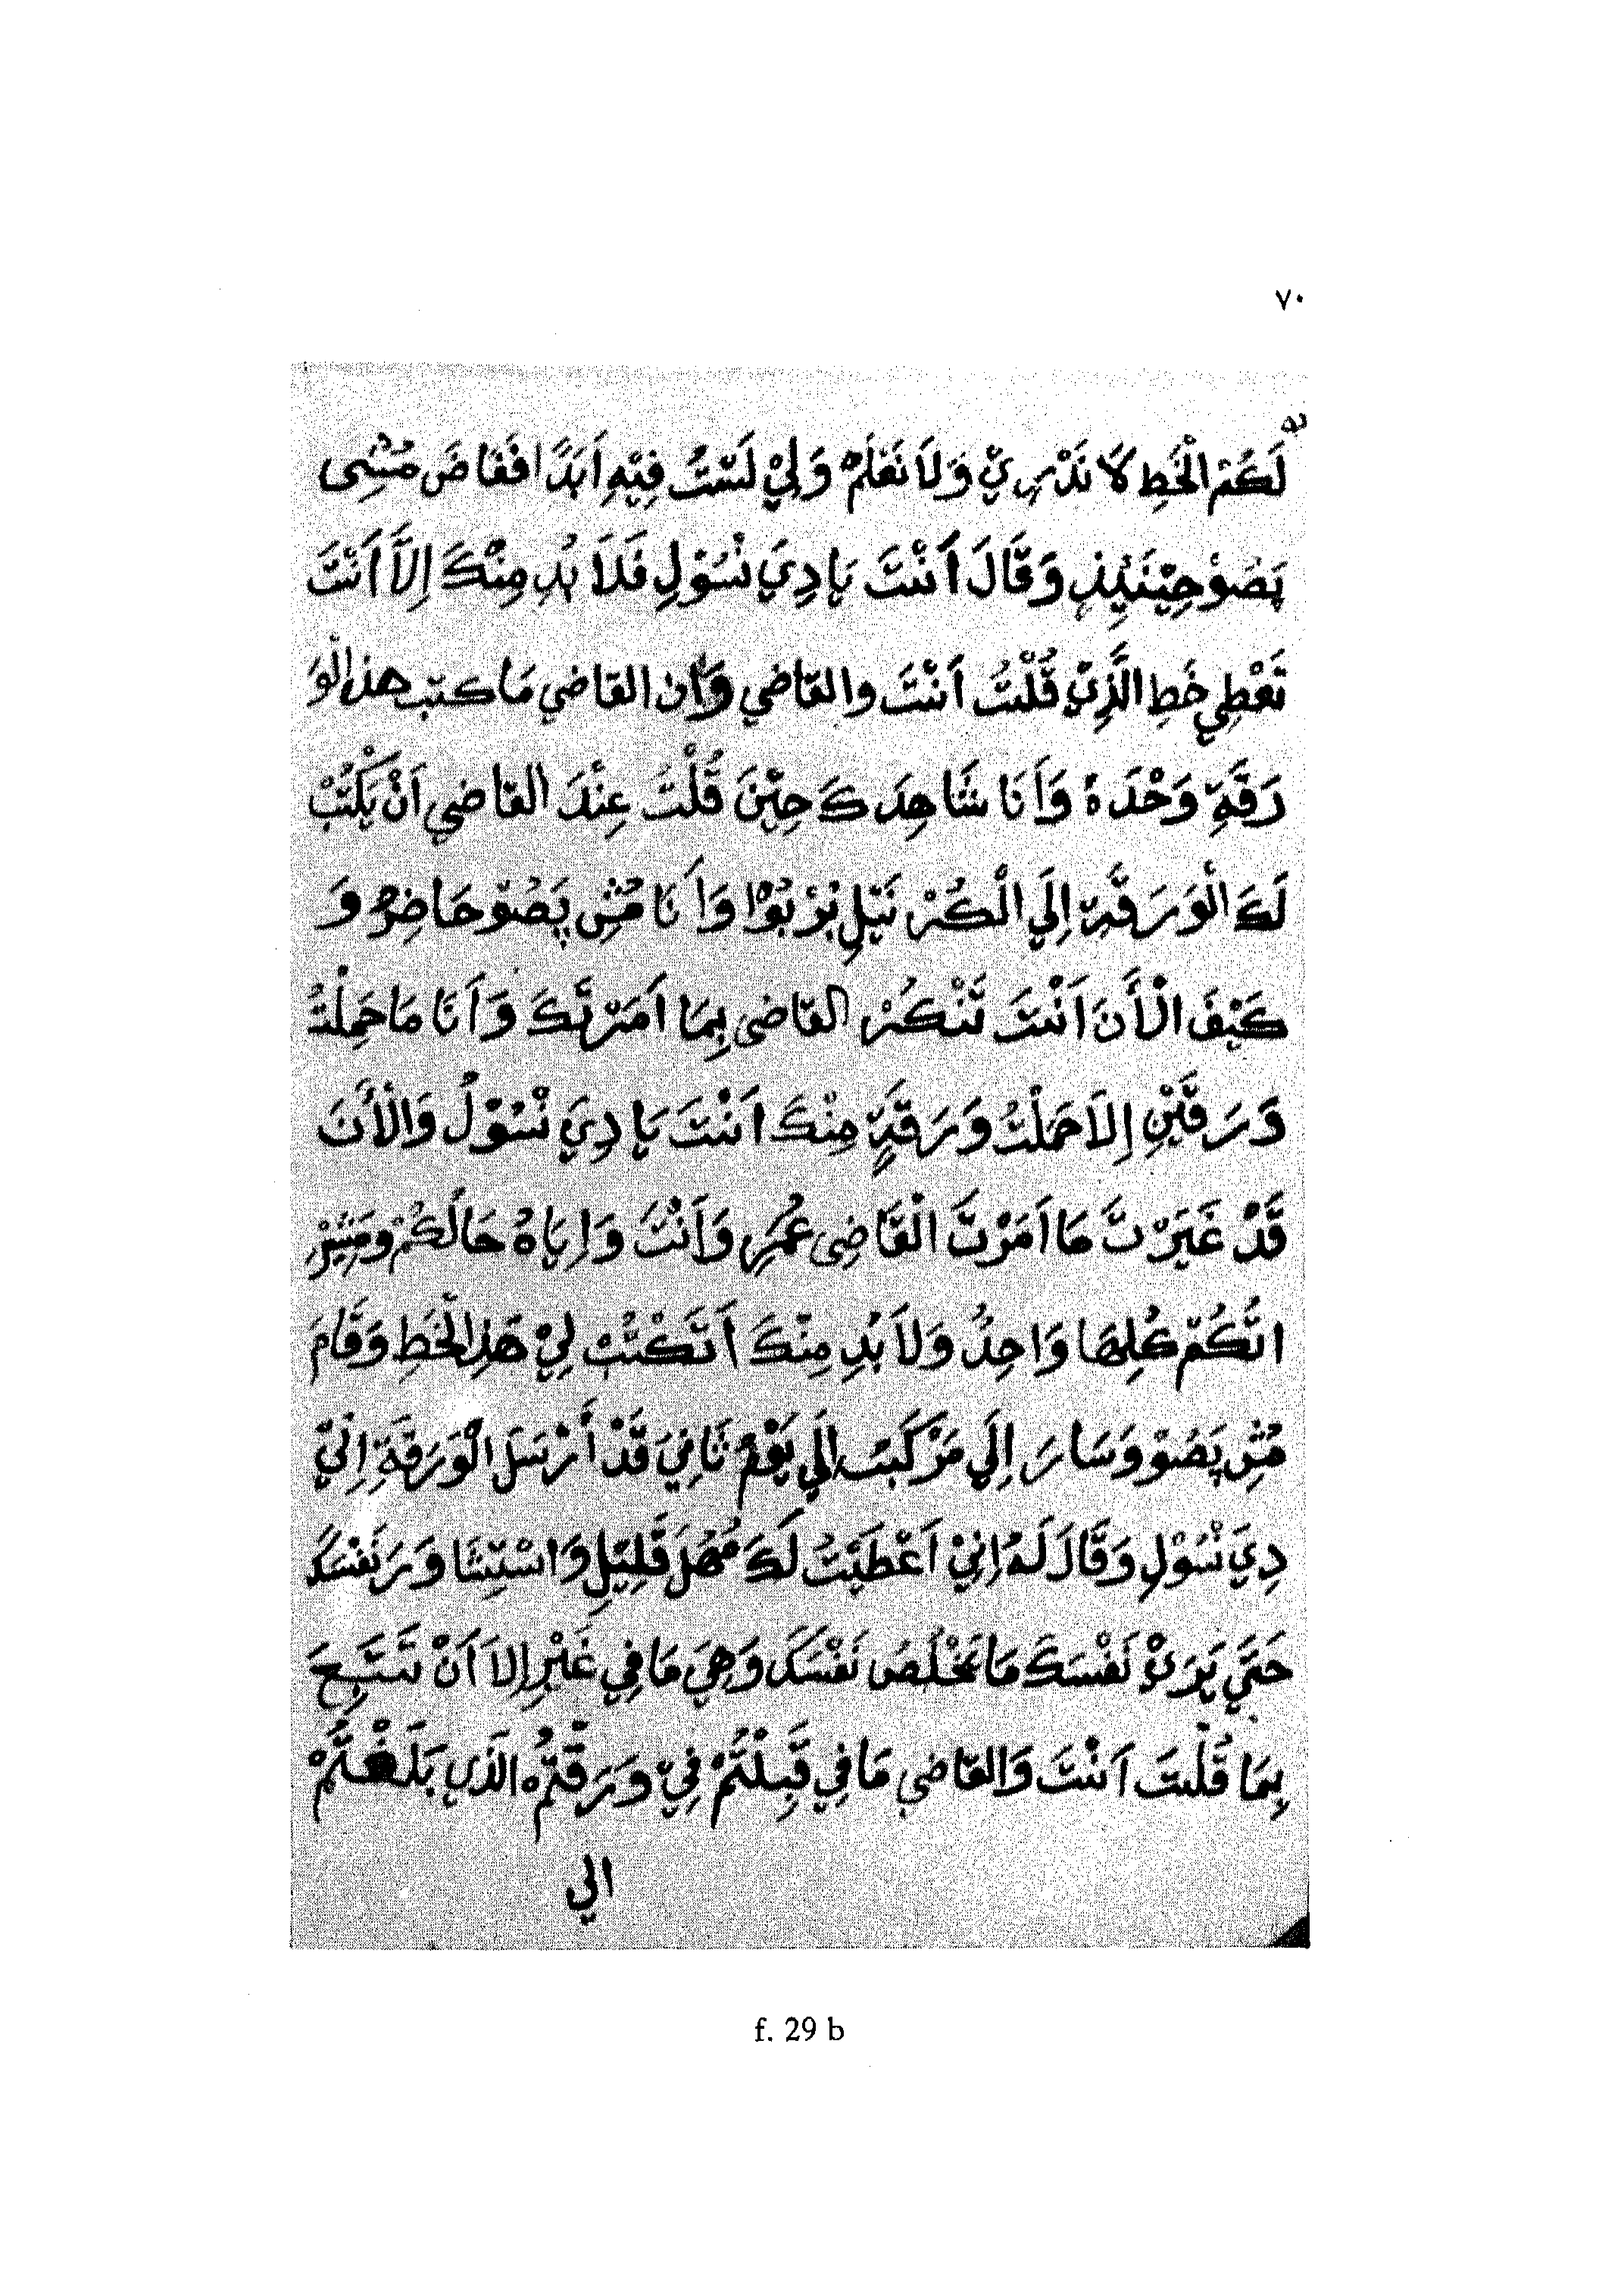 ٧٠
لَكُمْ الْخَطِ لَا نَدْرِيْ وَلَا نَعْلَمْ وَلِيْ لَسْتُ فِيْهِ اَبَدًا فَغَاضَ مُشِى
بَصُوْ حِيْنَئِذٍ وَقَالَ اَنْتَ يَادِيَ نْسُوْلِ فَلَا بُدِ مِنْكَ إِلَّا أَنْتَ
تَعْطِي خَطِ الَّذِيْ قُلْتُ اَنْتَ والقاضي وَاِن القاضي مَا كتب هذالْوَ
رَقَةِ وَحْدَهُ وَاَنَا شَاهِدَكَ حِيْنَ قُلْتُ عِنْدَ القاضي اَنْ يَكْتُبْ
لَكَ الْوَرَقَةِ إِلَي الْكُرْنَيْلِ بْرْبُوْا وَاَنَا مُشِ بَصُوْ حَاضِرْ وَ
كَيْفَ الْأَنَ اَنْتَ تَنْكُرْ القاضى بِمَا اَمَرْتَكَ وَاَنَا مَا حَمِلْتُ
وَرَقَتَيْنِ إِلَا حَمَلْتُ وَرَقَةٍ مِنْكَ اَنْتَ يَا دِيَ نْسُوْلُ وَالْأَنَ
قَدْ غَيَرْتَ مَا اَمَرْتَ الْقَاضِى عُمَرِ وَاَنْتَ وَاِيَاهُ حَالُكُمْ وَمَشِيْرِ
اتُكُمْ كُلِهَا وَاحِدٌ وَلَا بُدِ مِنْكَ اَتَكْتُبْ لِيْ هَذِالْخَطِ وَقَامَ
مُشِ بَصُوْ وَسَارَ إِلَي مَرْكَبُ اِلَي يَوْمْ ثَانِيَ قَدْ أَرْسَلَ الْوَرَقَةِ اِلَيْ
دِيَ نْسُوْلِ وَقَالَ لَهُ اِنِيْ اَعْطَيْتُ لَكَ مُهْلَ قَلِيْلٍ وَاسْتِيْشَا وَرَ نَفْسَكَ
حَتَّي يَرَيْ نَفْسَكَ مَا تَخْلُصُ نَفْسَكَ وَهِيَ مَا فِي غَيْرِ اِلَا اَنْ تَسَبِحَ
بِمَا قُلْتَ اَنْتَ وَالقاضي مَا فِي قَبِلْتُمْ فِيْ وَرَقَتُمْ الذي بَلَغْتُمْ
الي
f. 29 b